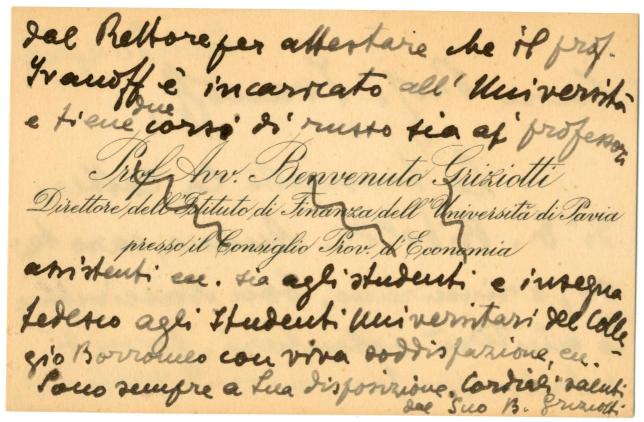 dal Rettore per attestare che il prof.
Ivanoff è incaricato all' Università
e tiene due corsi di russo sia ai professori
Prof. Avv. Benvenuto Griziotti
Direttore dell'Istituto di Finanza dell'Università di Pavia
presso il Consiglio Prov. d'Economia
assistenti ecc. sia agli studenti e insegna
tedesco agli Studenti Universitari del Colle-
gio Borromeo con viva soddisfazione, ecc.
Sono sempre a Sua disposizione. Cordiali saluti
dal Suo B. Griziotti